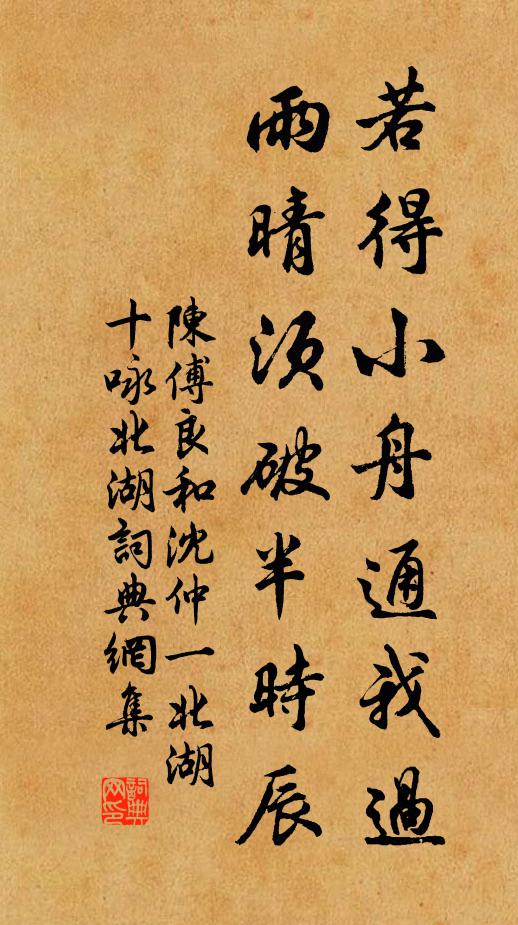 若得小舟通我過
雨晴須破半時辰
陳傅良和沈仲一北湖
十咏北湖詞典網集
詞典
网印